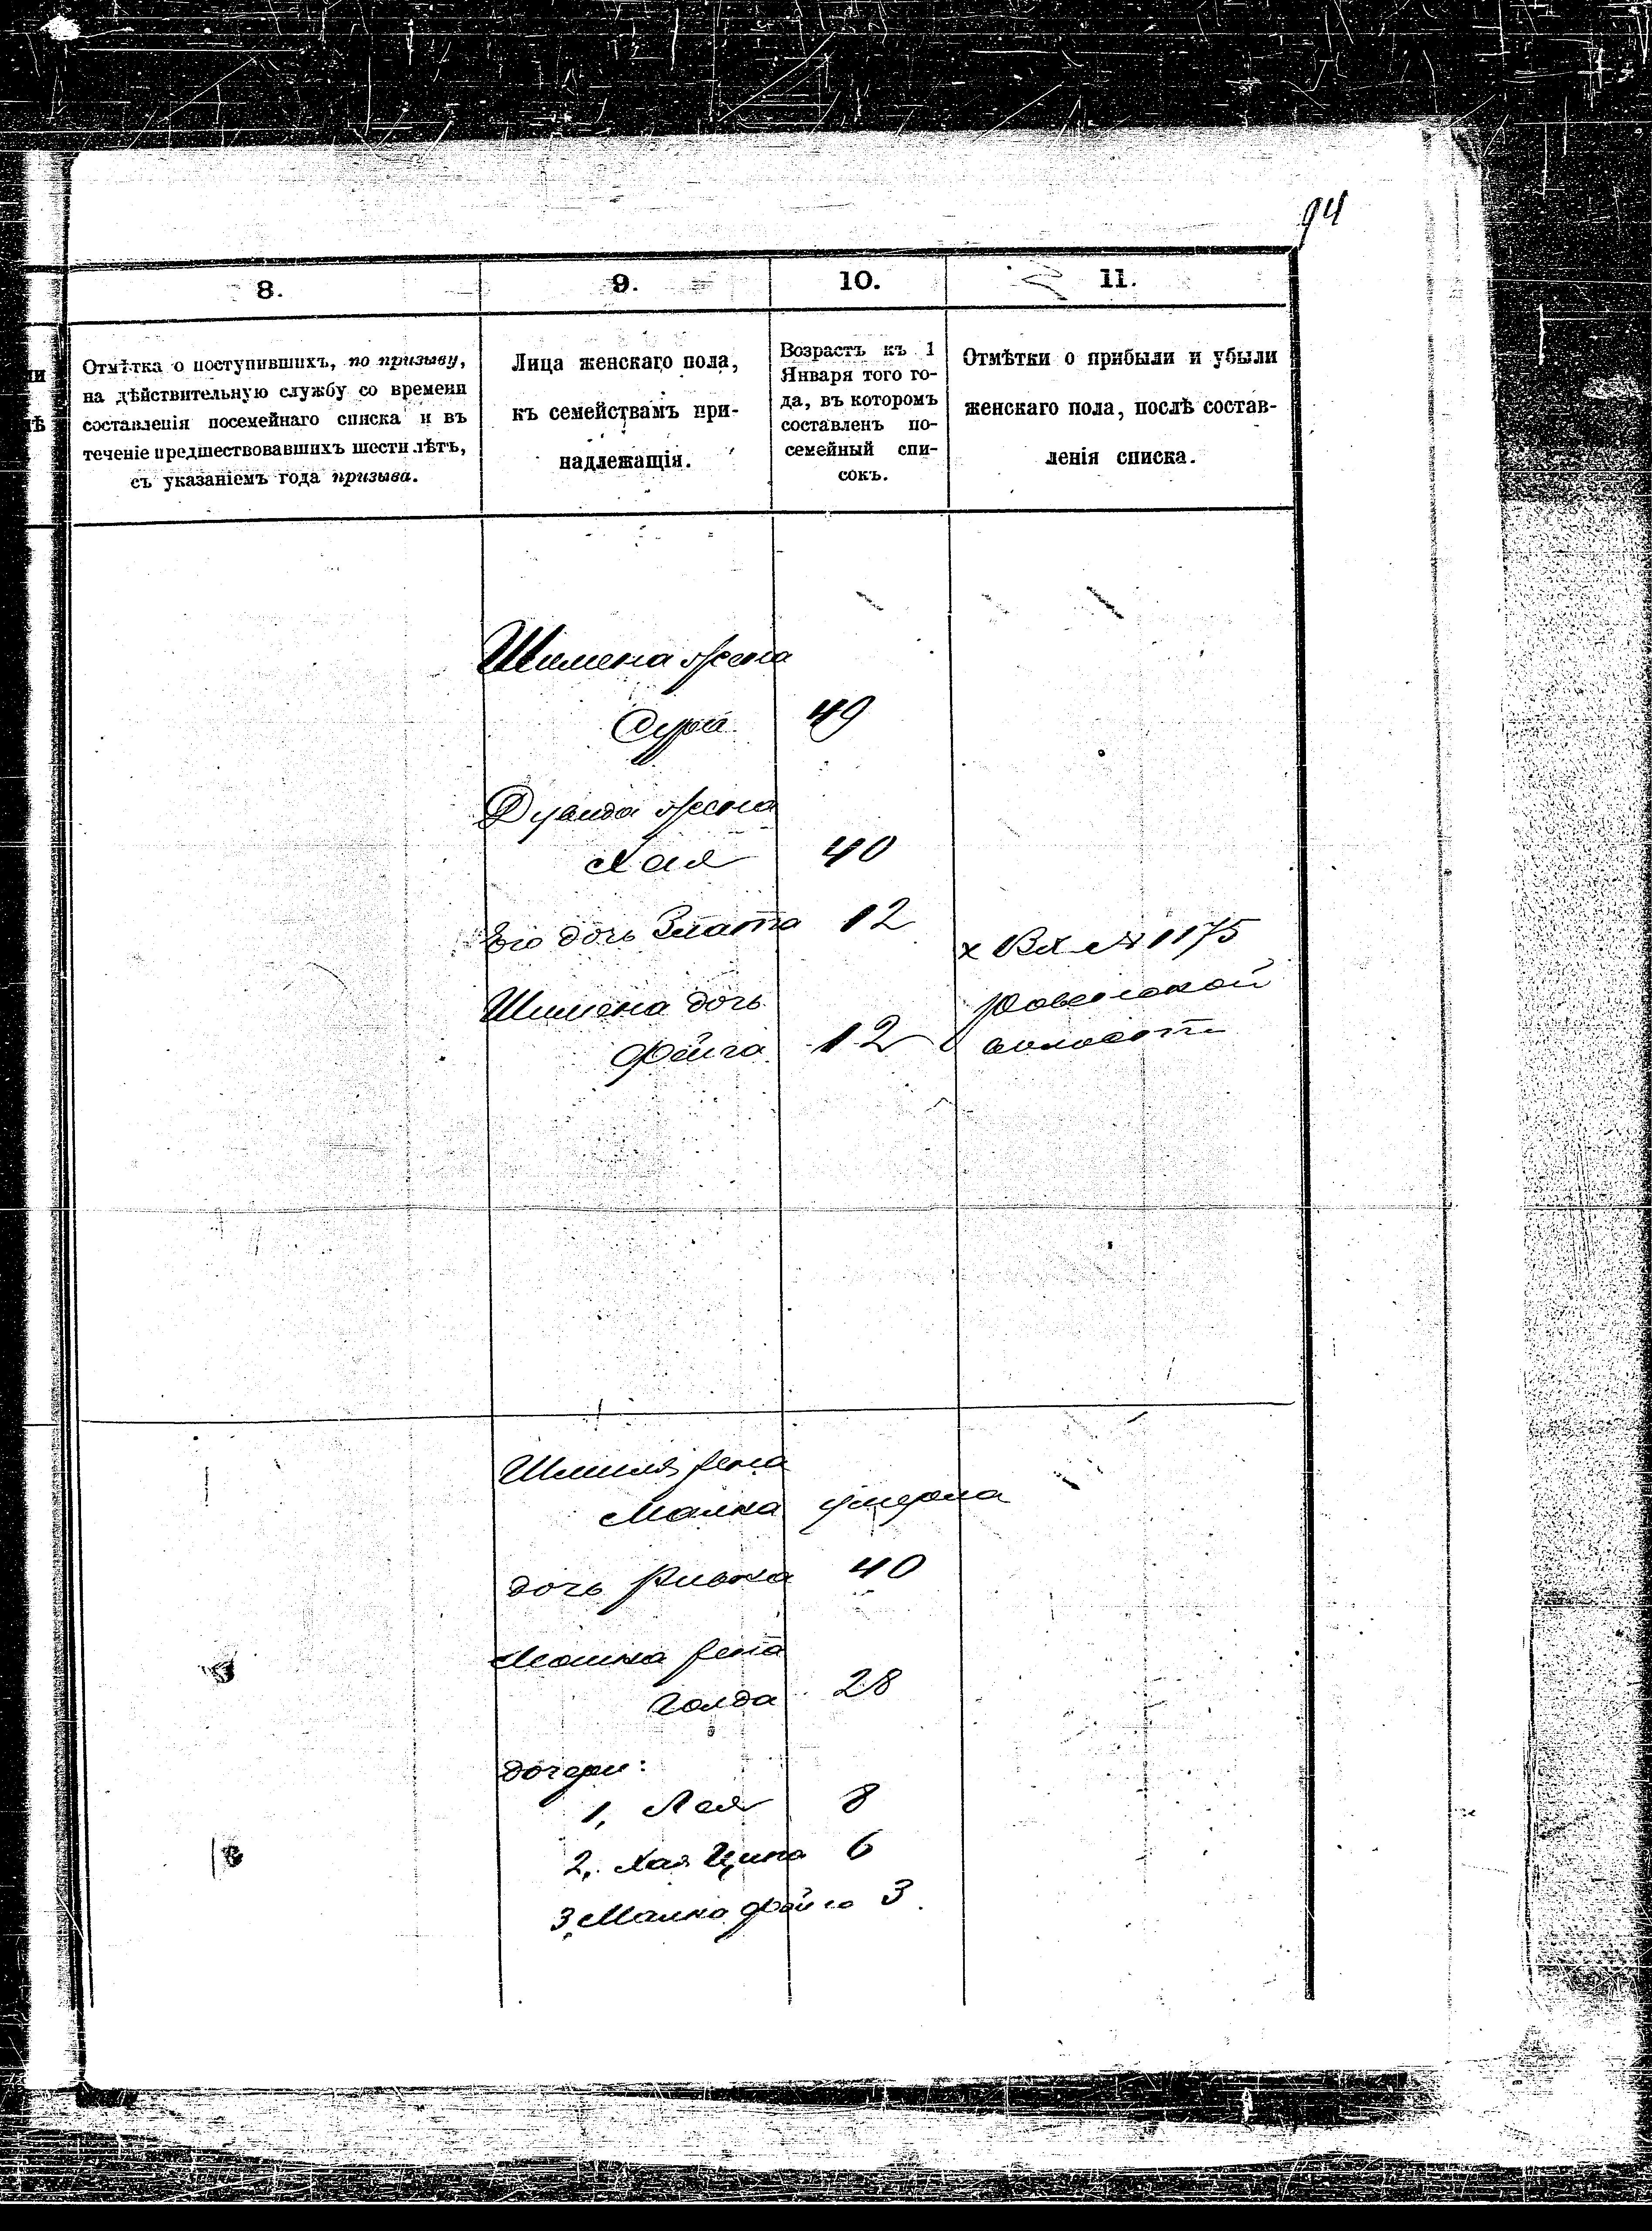 94
8. 9. 10. 11.
ли
лѣ
Отмѣтка о поступившихъ, по призыву,
на дѣйствительную службу со времени
составленія посемейнаго списка и въ
теченіе предшествовавшихъ шести лѣтъ,
съ указаніемъ года призыва.
Лица женскаго пола,
къ семействамъ при-
надлежащія.
Возрастъ къ 1
Января того го-
да, въ которомъ
составленъ по-
семейный спи-
сокъ.
Отмѣтки о прибыли и убыли
женскаго пола, послѣ состав-
ленія списка.
Шимена жена
Сура 49
жена
Хая 40
Его дочь Злата 12
х Вх № 1175
Шимена дочь
Фейга 12
волости
жена
Малка умерла
дочь Ривка 40
Мошка жена
Голда 28
дочери:
1, Лея 8
2, Хая Ципа 6
3, Малка Фейга 3